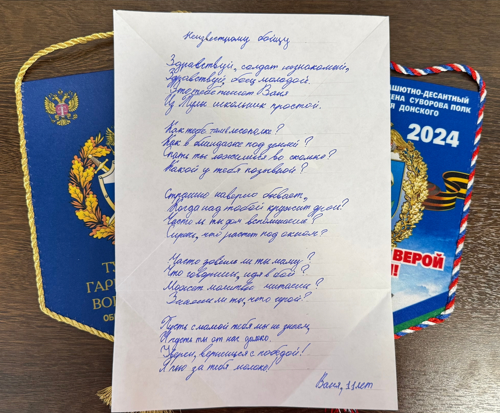 Неизвестному бойцу
Здравствуй, солдат незнакомый,
Здравствуй, боец молодой.
Это тебе пишет Ваня
Из Тулы школьник простой.
Как тебе там
Как в блиндаже под землёй?
Спать ты ложишься во сколько?
Какой у тебя позывной?
Страшно наверно бывает,
Когда над тобой кружит дрон?
Часто ли ты дом вспоминаешь?
Сирень, что растёт под окном?
Часто звонишь ли ты маме?
Что говоришь, идя в бой?
Может молитву читаешь?
ли ты, что герой?
Пусть с мамой тебя мы не знаем,
И пусть ты от нас далеко.
вернешься с победой!
Я пью за тебя молоко!
Ваня, 11 лет
ТУ
ГАР
ВО
ОБ
АШЮТНО-ДЕСАНТНЫЙ
ЕНА СУВОРОВА ПОЛК
Я ДОНСКОГО
2024
ВЕРОЙ